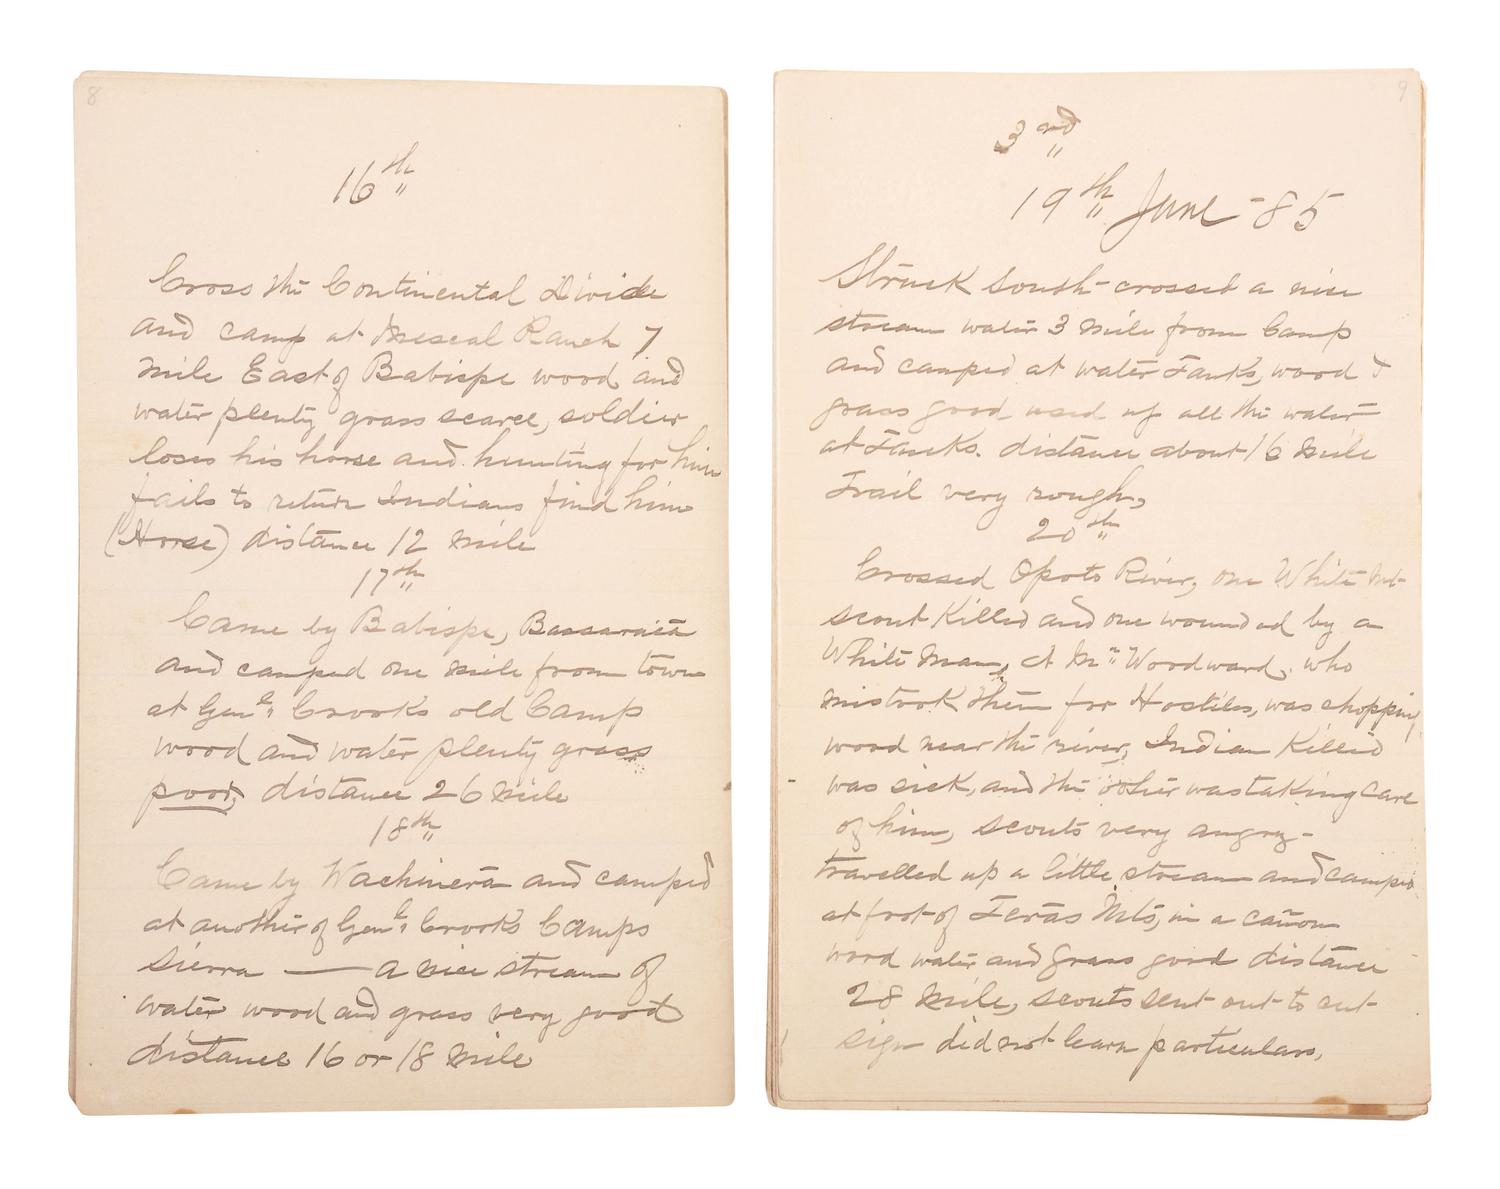 8
16th
Cross the Continental Divide
and camp at Mescal Ranch 7
mile East of Babispe wood and
water plenty grass scarce, soldier
loses his horse and hunting for him
fails to return Indians find him
(Horse) distance 12 mile
17th
Came by Babispe, Bassaraca
and camped one mile from town
at Genl Crook's old Camp
wood and water plenty grass
poor, distance 26 mile
18th
Came by Wachinera and camped
at another of Genl Crook's Camps
Sierra — a nice stream of
water wood and grass very good
distance 16 or 18 mile
9
3nd
19th June -85
Struck south - crossed a nice
stream water 3 mile from Camp
and camped at water Tanks, wood &
grass good used up all the water
at Tanks. distance about 16 mile
Trail very rough,
20th
Crossed Opoto River, one White Mt
scout Killed and one wounded by a
White Man, A Mr Woodward, who
mistook them for Hostiles, was chopping
wood near the river, Indian Killed
was sick, and the other was taking care
of him, scouts very angry -
travelled up a little stream and camped
at foot of Teras Mts, in a cañon
wood water and grass good distance
28 mile, scouts sent out to cut
sign did not learn particulars,